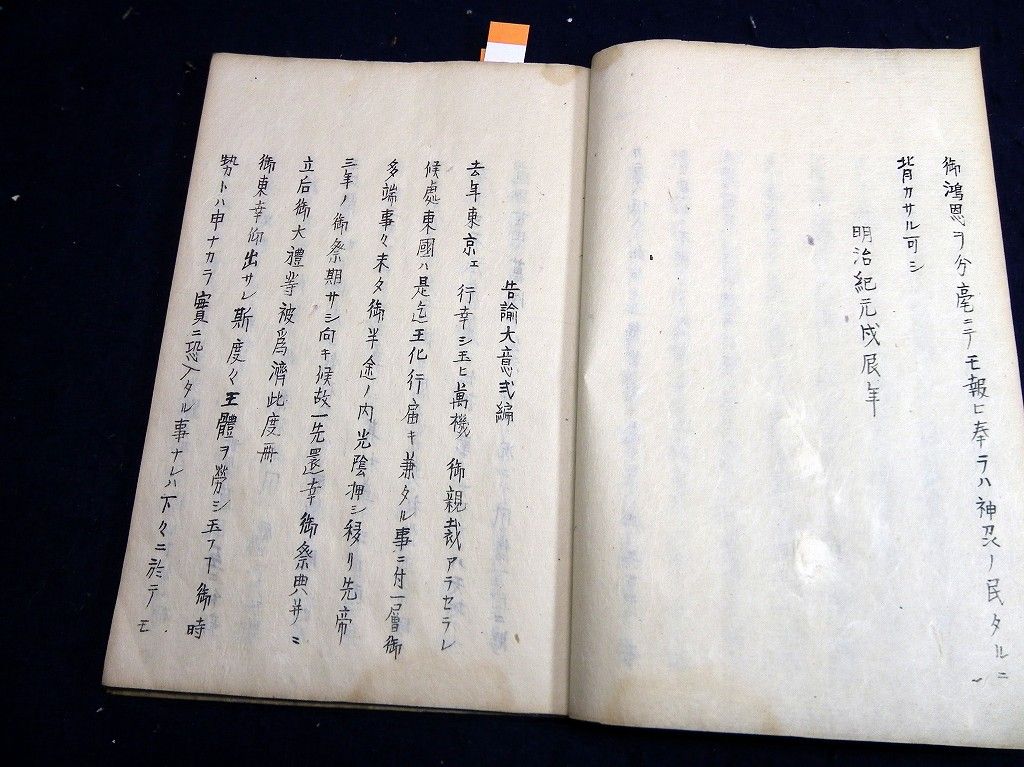 御鴻恩ヲ分毫ニテモ報ヒ奉ラハ神忍ノ民タルニ
背カサル可シ
明治紀元戊辰年
告諭大意弐編
去年東京エ行幸シ玉ヒ萬機御親裁アラセラレ
候處東國ハ是迄王化行届キ兼タル事ニ付一層御
多端事々未タ御半途ノ内光陰押シ移リ先帝
三年ノ御祭期サシ向キ候故一先還幸御祭典并ニ
立后御大禮等被為濟此度再
御東幸仰出サレ斯度々王體ヲ勞シ玉フ御時
勢トハ申ナカラ實ニ恐入タル事ナレハ下々ニ於テモ